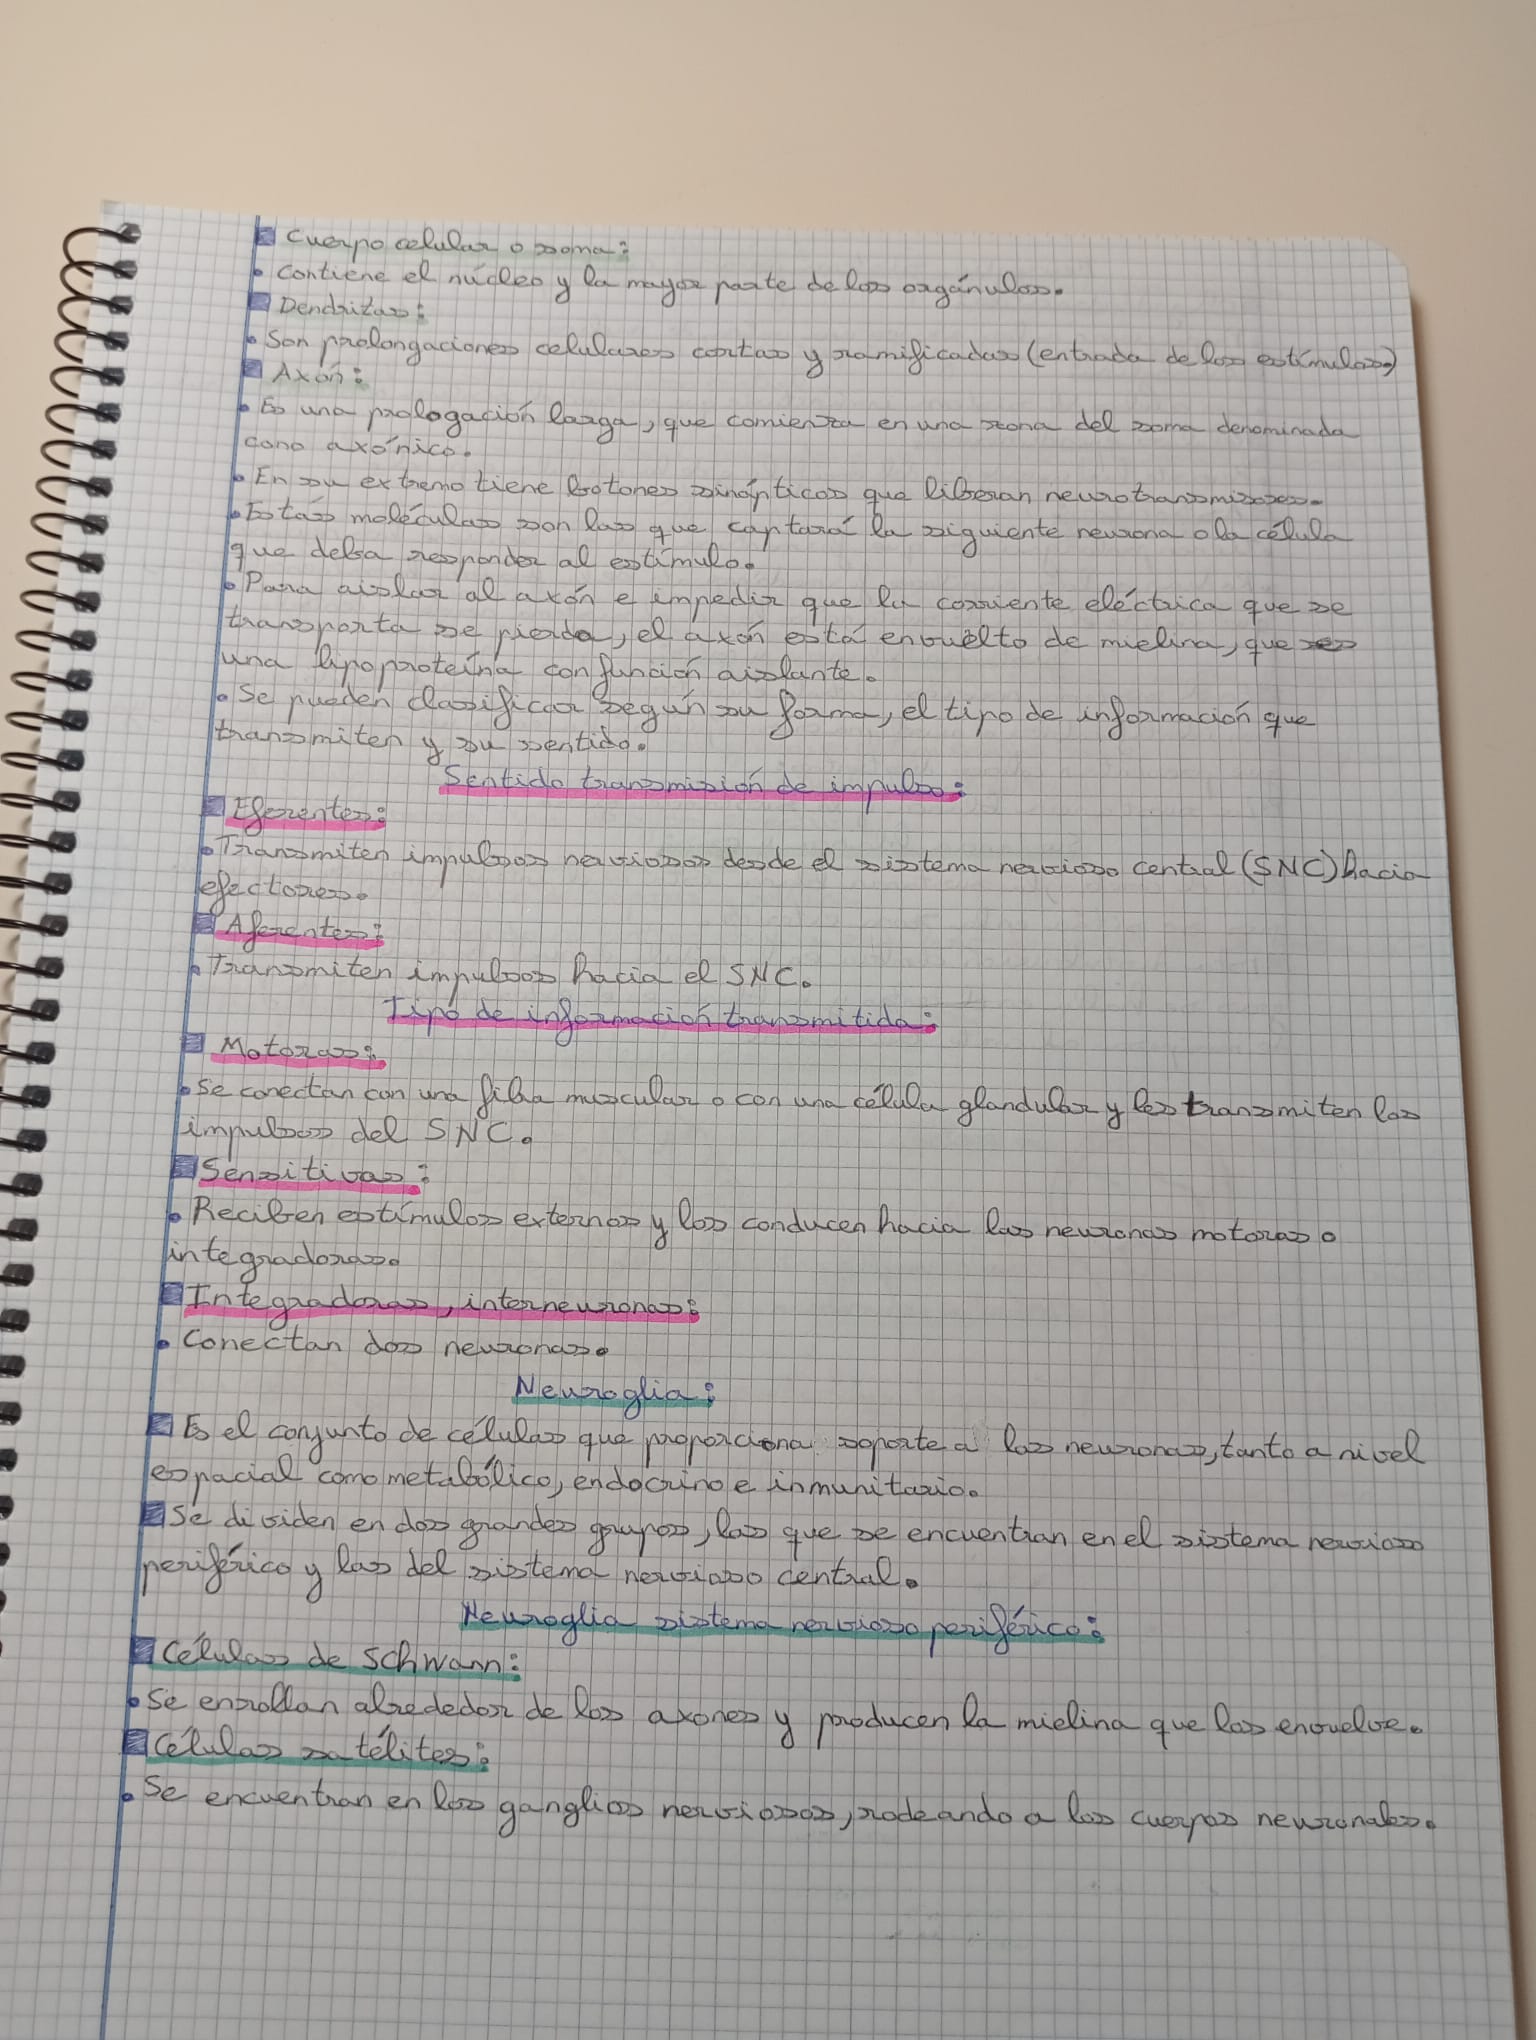 Cuerpo celular o soma:
• Contiene el núcleo y la mayor parte de los orgánulos.
Dendritas:
• Son prolongaciones celulares cortas y ramificadas (entrada de los estímulos)
Axón:
• Es una prologación larga, que comienza en una zona del soma denominada
cono axónico.
• En su extremo tiene botones sinápticos que liberan neurotransmisores.
• Estás moléculas son las que captará la siguiente neurona o la célula
que deba responder al estímulo.
• Para aislar al axón e impedir que la corriente eléctrica que se
transporta se pierda, el axón está envuelto de mielina, que es
una lipoproteína con función aislante.
• Se pueden clasificar según su forma, el tipo de información que
transmiten y su sentido.
Sentido transmisión de impulso:
Eferentes:
• Transmiten impulsos nerviosos desde el sistema nervioso central (SNC) hacia
efectores.
Aferentes:
• Transmiten impulsos hacia el SNC.
Tipo de información transmitida:
Motoras:
• Se conectan con una fibra muscular o con una célula glandular y les transmiten los
impulsos del SNC.
Sensitivas:
• Reciben estímulos externos y los conducen hacia las neuronas motoras o
integradoras.
Integradoras, interneuronas:
• Conectan dos neuronas.
Neuroglia:
Es el conjunto de células que proporciona soporte a las neuronas, tanto a nivel
espacial como metabólico, endocrino e inmunitario.
Se dividen en dos grandes grupos, las que se encuentran en el sistema nervioso
periférico y las del sistema nervioso central.
Neuroglia sistema nervioso periférico:
Células de Schwann:
• Se enrollan alrededor de los axones y producen la mielina que los envuelve.
Células satélites:
• Se encuentran en los ganglios nerviosos, rodeando a los cuerpos neuronales.